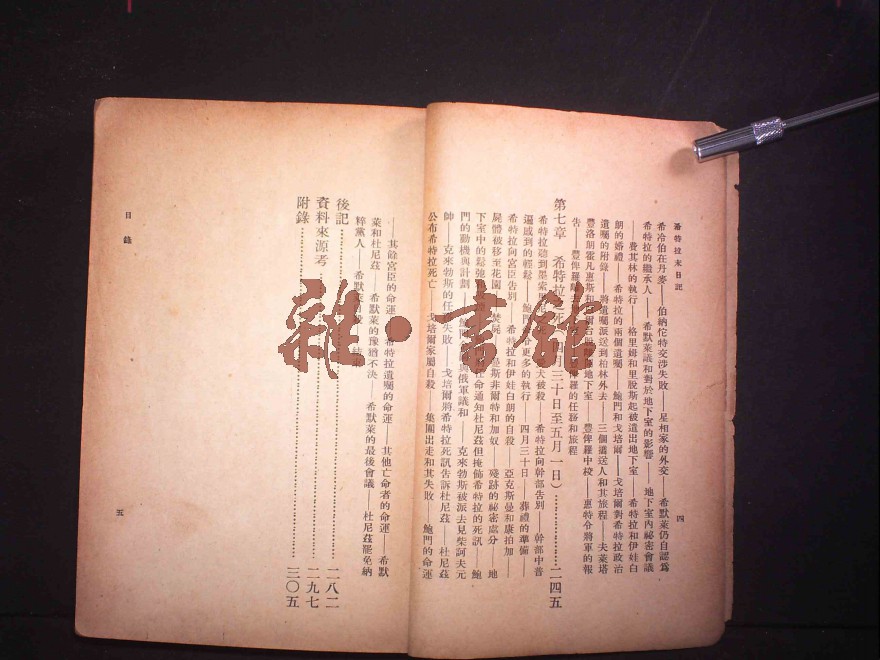 希特拉末日記
四
希冷伯在丹麥——伯納佗特交涉失敗——星相家的外交——希默萊仍自認爲
希特拉的繼承人——希默萊議和對於地下室的影響——地下室內祕密會議
——費其林的執行——格里姆和里脫斯起被遣出地下室——希特拉和伊娃白
朗的婚禮——希特拉的兩個遺囑——鮑門和戈培爾——戈培爾對希特拉政治
遺囑的附錄——將遺囑派送到柏林外去——三個遞送人和其旅程——夫萊塔
豐洛朗霍凡惠斯和 地下室——豐俾羅中校——惠特令將軍的報
告——豐俾羅 俾羅的任務和旅程
第七章 希特拉 三十日至五月一日）……二四五
希特拉聽到墨索 犬被殺——希特拉向幹部告別——幹部中普
遍感到的輕鬆——鮑門 更多的執行——四月三十日——葬禮的準備——
希特拉向宮臣告別——希特拉和伊娃白朗的自殺——亞克斯曼和康拍加——
屍體被移至花園——焚屍—— 曼斯非爾特和加奴——殘跡的祕密處分——地
下室中的鬆弛 任命通知杜尼茲但掩佈希特拉的死訊——鮑
門的動機與計劃—— 與俄軍議和——克來勃斯被派去見柴阿夫元
帥——克來勃斯的任務失敗——戈培爾將希特拉死訊告訴杜尼茲——杜尼茲
公布希特拉死亡——戈培爾家屬自殺——集團出走和其失敗——鮑門的命運
——其餘宮臣的命運——希特拉遺囑的命運——其他亡命者的命運——希默
萊和杜尼茲——希默萊的豫猶不決——希默萊的最後會議——杜尼茲罷免納
粹黨人——希默萊
後記……二八二
資料來源考……二九七
附錄……三〇五
目錄
五
雜·書館